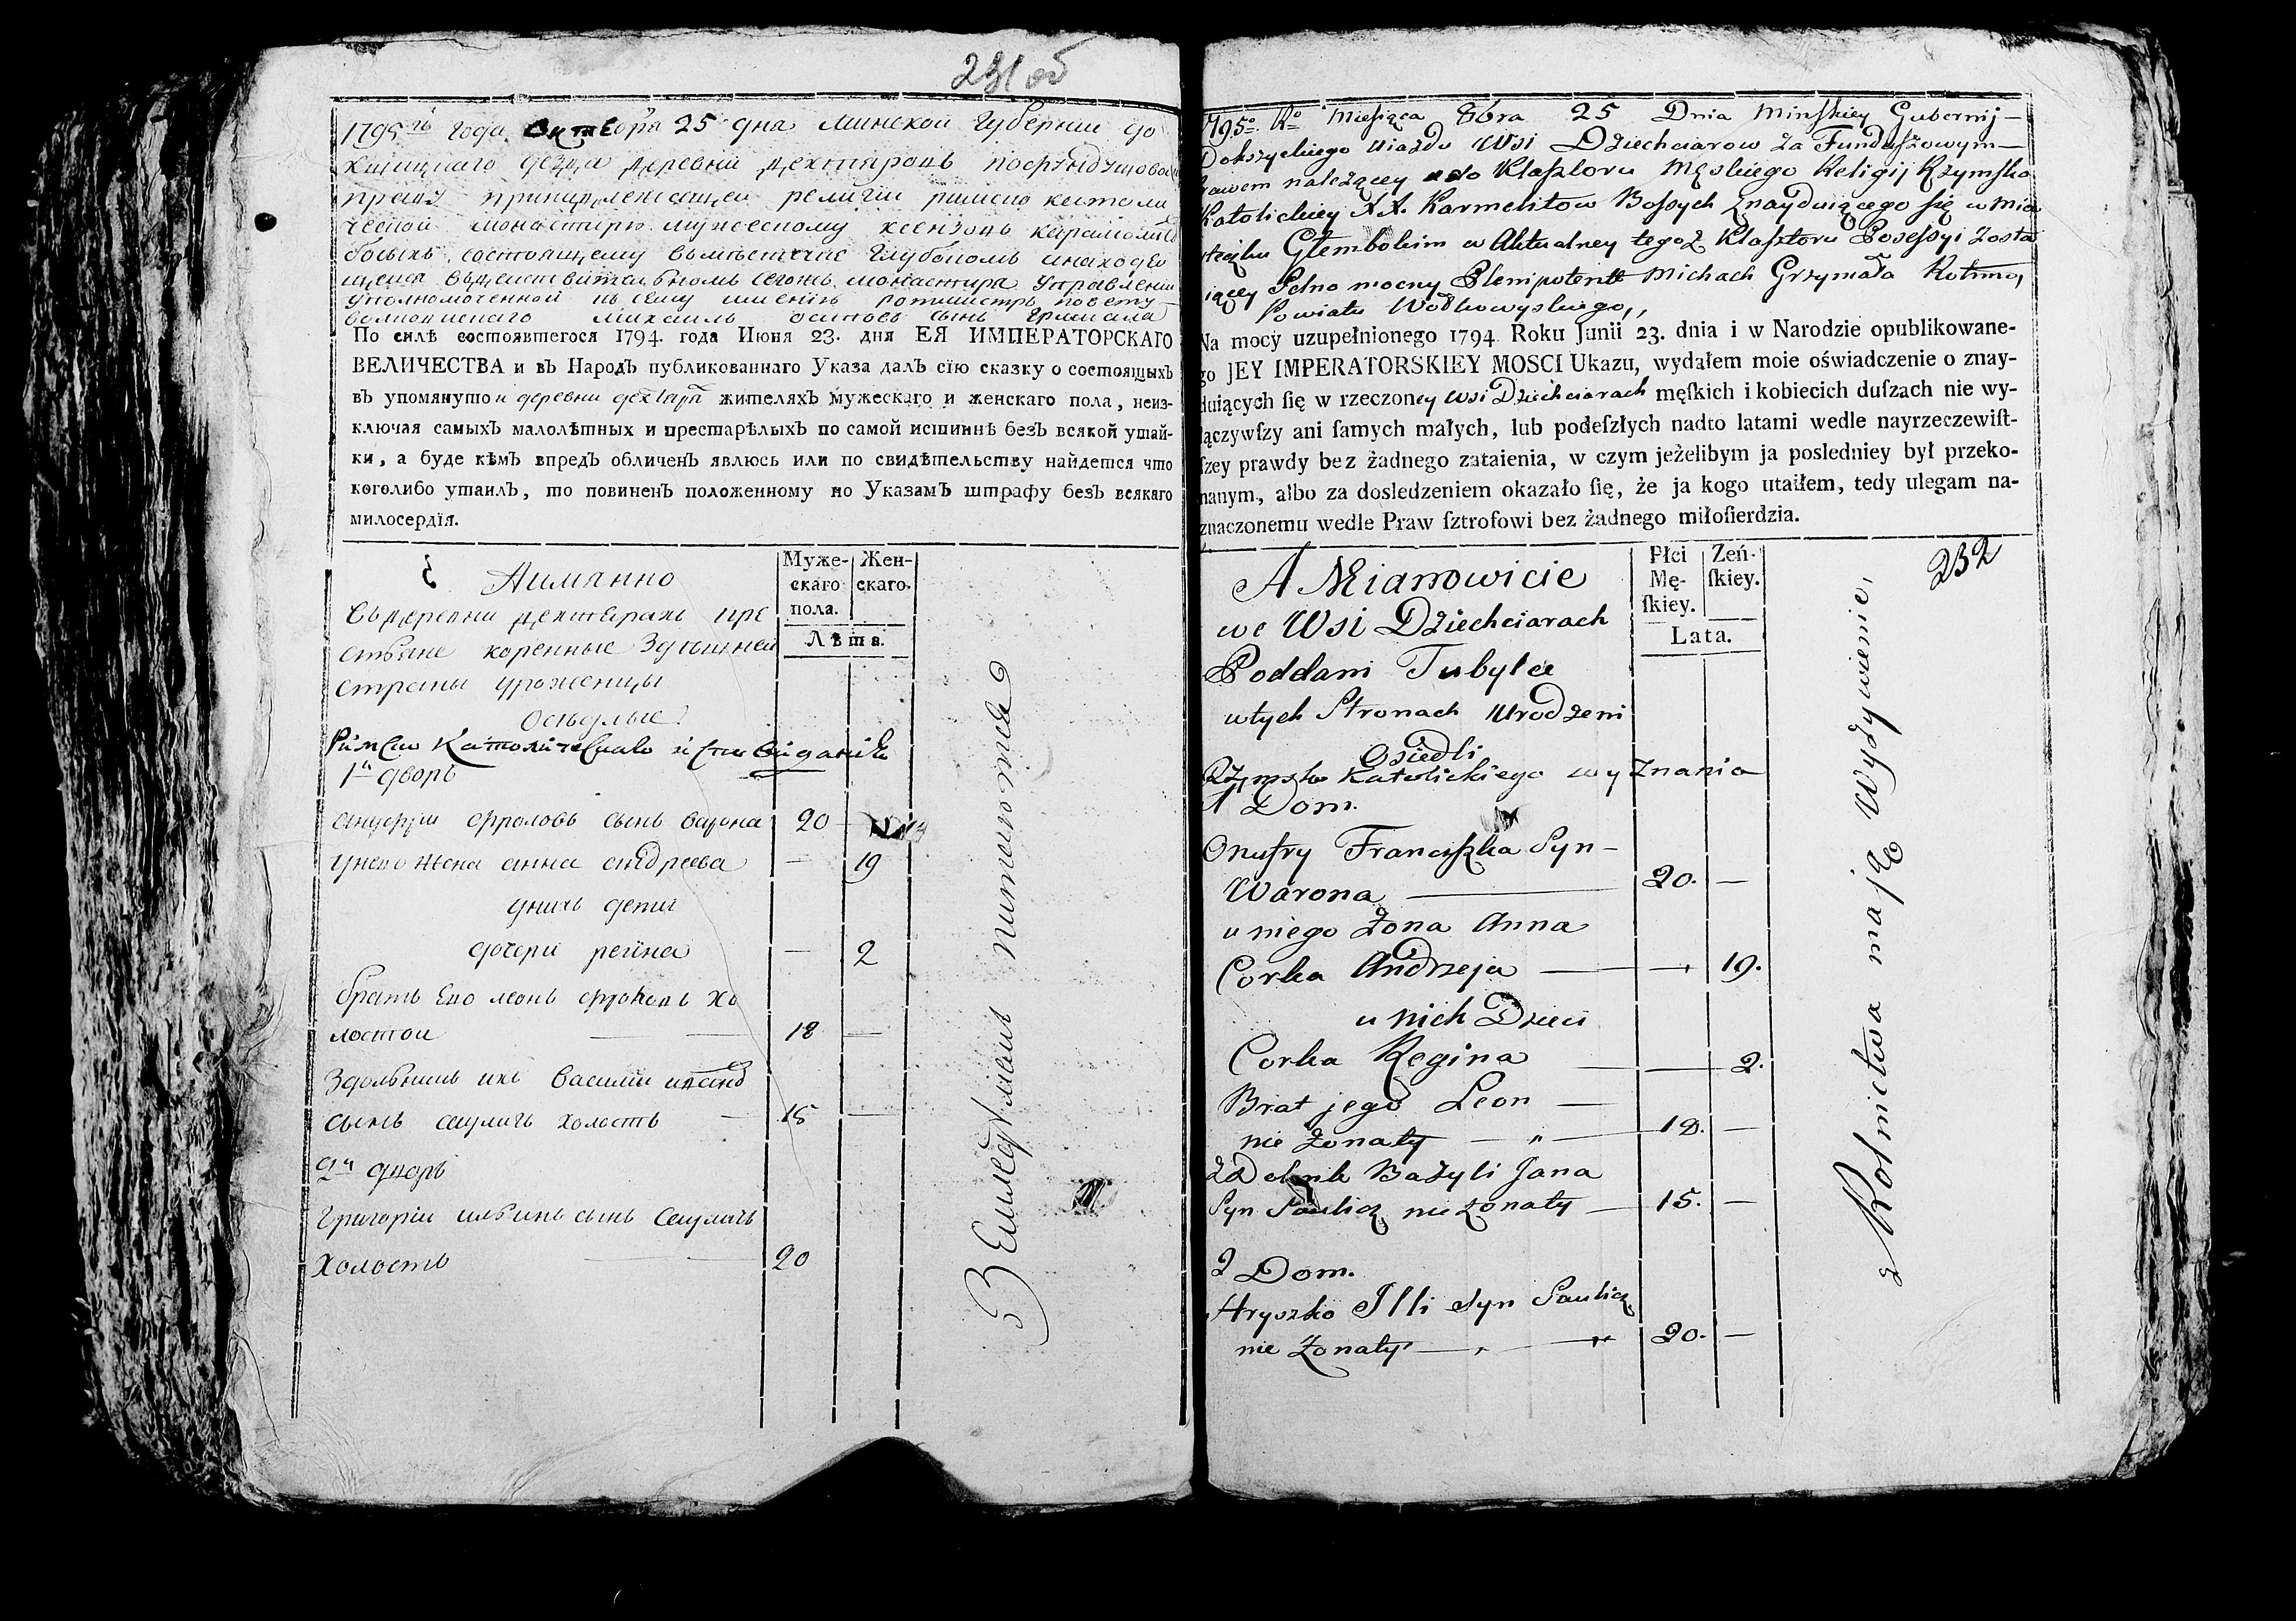 231 об
1795 года Октября 25 дна минской губернии до
кшицкаго уезда деревни дехтяровъ пофундушовому
праву принадлежащей религии римско католи
ческой монастирю мужескому ксензовъ кармелитовъ
босыхъ состоящему вместечке глубокомъ инаходя
щейся въдействительномъ сегожъ монастира управлении
уполномоченной ксему имению ротмистръ повету
волковискаго михаилъ сынъ гржимала
По силѣ состоявшегося 1794. года Июня 23. дня ЕЯ ИМПЕРАТОРСКАГО
ВЕЛИЧЕСТВА и въ Народъ публикованнаго Указа далъ сїю сказку о состоящыхъ
въ упомянутои деревни дехтярѣ жителяхъ мужескаго и женскаго пола, неиз-
ключая самыхъ малолѣтныхъ и престарѣлыхъ по самой истиннѣ безъ всякой утай-
ки, а буде кѣмъ впредъ обличенъ явлюсь или по свидѣтельству найдется что
коголибо утаилъ, то повиненъ положенному по Указамъ штрафу безъ всякаго
милосердїя.
Аимянно
Муже-
скаго
пола.
Жен-
скаго.
Лѣта.
Въдеревни дехтярахъ кре
стьяне коренные здешней
страны уроженцы
оседлые
Римско Католическаго
1й дворъ
онуфри фроловъ сынъ варона 20 —
унего жена анна андреева — 19
унихъ дети
дочери регина — 2
братъ его леонъ хо
лостои — 18 —
здольникъ ихъ василии
сынъ сауличъ холостъ — 15 —
2й дворъ
григорїи ильинъ сынъ сауличъ
холостъ — 20
Земледѣлиемъ питаются
1795o. Ro Miesiąca 8bra 25 Dnia Minskiey Gubernij—
Dokszyckiego Uiazdu Wsi Dziechciarow za Funduszowym—
Prawem należącey do Klasztoru Męskiego Religij Rzymsko
Katolickiey XX. Karmelitow Bossych Znayduiącego się w Mia
steczku Glembokim w Aktualney tegoż Klasztoru Posessyi Zosta
iącey Pełno mocny Plenipotent Michał Grzymała Rotm,
Powiatu Wołkowyskiego,,
Na mocy uzupełnionego 1794 Roku Junii 23. dnia i w Narodzie opublikowane-
go JEY IMPERATORSKIEY MOSCI Ukazu, wydałem moie oświadczenie o znay-
duiących ſię w rzeczoney wsi Dziechciarach męſkich i kobiecich duſzach nie wy-
łączywſzy ani ſamych małych, lub podeſzłych nadto latami wedle nayrzeczewiſt-
ſzey prawdy bez żadnego zataienia, w czym jeżelibym ja posledniey był przeko-
nanym, albo za dosledzeniem okazało ſię, że ja kogo utaiłem, tedy ulegam na-
znaczonemu wedle Praw ſztrofowi bez żadnego miłoſierdzia.
232
A Mianowicie
Płci
Mę-
ſkiey.
Zeń-
ſkiey.
Lata.
we Wsi Dziechciarach
Poddani Tubylce
wtych Stronach Urodzeni
Osiedli
Rzymsko Katolickiego wyznania
1 Dom.
Onufry Franciszka Syn —
Warona — 20. —
u niego Żona Anna
Corka Andrzeja — — 19.
u nich Dzieci
Corka Regina — — 2.
Brat jego Leon —
nie Żonaty — „ — 18. —
zdolnik Bazyli Jana
Syn Saulicz nie żonaty — 15. —
2 Dom.
Hryszko Illi Syn Saulicz
nie Żonaty — „ 20. —
z Rolnictwa mają Wyżywienie,